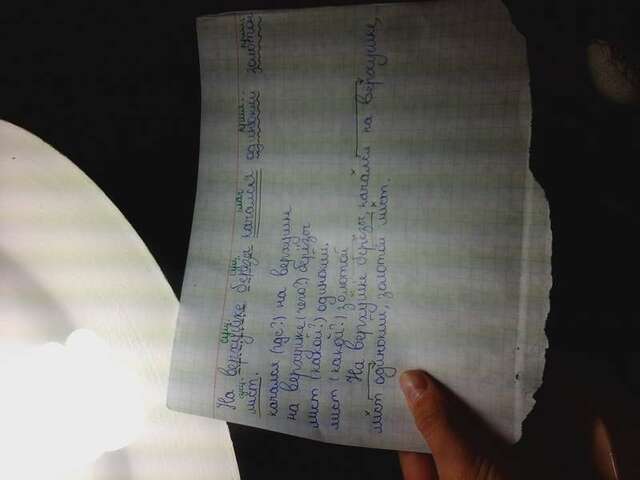 сущ. сущ. глаг. прил. прил.
На верхушке берёзы качался одинокий золотой
сущ.
лист.
качался (где?) на верхушке
на верхушке (чего?) берёзы
лист (какой?) одинокий.
лист (какой?) золотой
На верхушке берёзы, качался на верхушке,
лист одинокий, золотой лист.